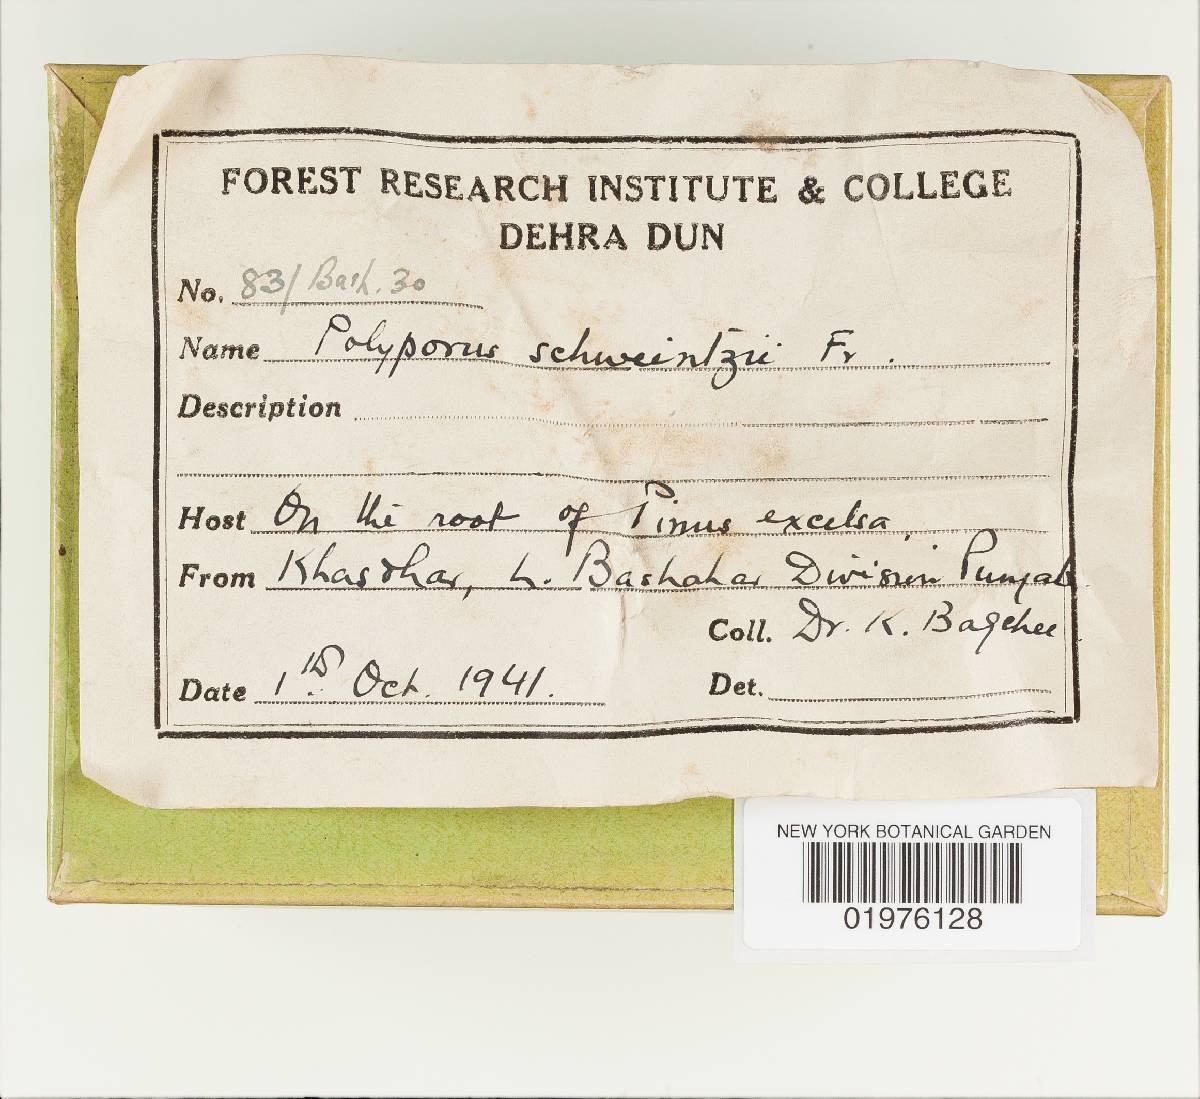 FOREST RESEARCH INSTITUTE & COLLEGE
DEHRA DUN
No. 83/Bash. 30
Name Polyporus schweintzii Fr.
Description
Host On the root of Pinus excelsa,
From Khasdhar, L. Bashahar Division Punjab.
Coll. Dr. K. Bagchee.
Date 1st Oct. 1941.
Det.
NEW YORK BOTANICAL GARDEN
01976128